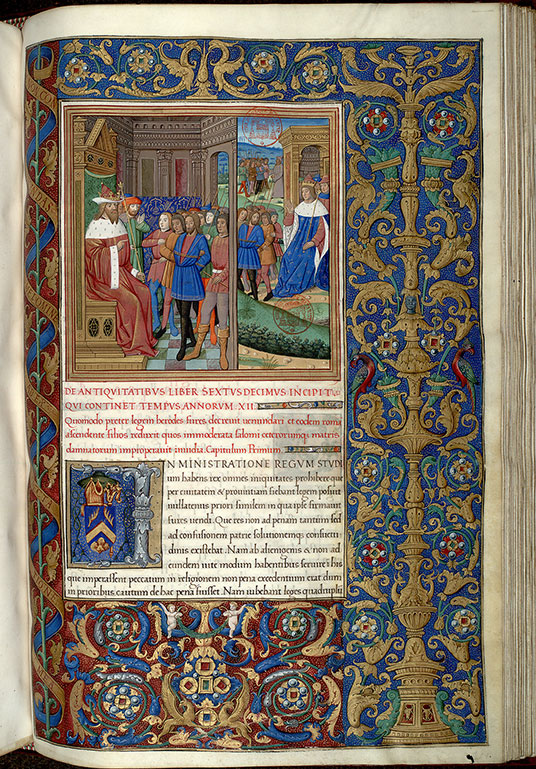 DE ANTIQVITATIBVS LIBER SEXTVS DECIMVS INCIPIT
QVI CONTINET TEMPVS ANNORVM XII
Quomodo preter legem heredes fures decreuit uenundari et eodem roma
ascendente filios reduxit quos immoderata salomi ceterorumq; matris
damnatorum improperauit inuidia. Capitulum Primum.
IN MINISTRATIONE REGVM STVDI
um habens rex omnes iniquitates prohibere que
per ciuitatem & prouintiam fiebant legem posuit
nullatenus priori similem in qua ipse firmauit
fures uendi. Que res non ad penam tantum sed
ad confusionem patrie solutionemq; consuetu
dinis existebat. Nam ab alienigenis & non ad
eundem uite modum habentibus seruire i his
que imperassent peccatum in religionem non pena excedentium erat dum
in prioribus cautum de hac pena fuisset. Nam iubebant leges quadrupli